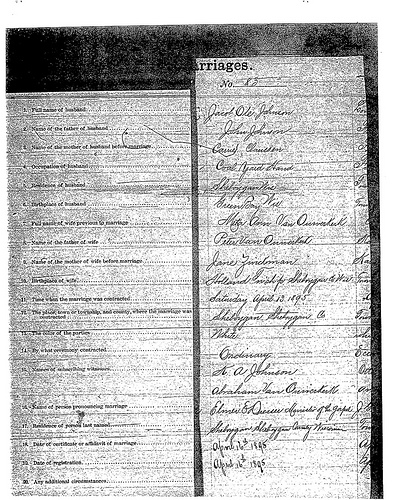 rriages.
No. 83
1. Full name of husband Jacob Ole Johnson
2. Name of the father of husband John Johnson
3. Name of the mother of husband before marriage Clausen
4. Occupation of husband Coal Yard Hand
5. Residence of husband Sheboygan Wis
6. Birthplace of husband Green Bay Wis
7. Full name of wife previous to marriage Van Ouwerkerk
8. Name of the father of wife Peter Van Ouwerkerk
9. Name of the mother of wife before marriage Jane
10. Birthplace of wife Holland Township Sheboygan Co Wis
11. Time when the marriage was contracted Saturday April 13 1895
12. The place, town or township, and county, where the marriage was
contracted Sheboygan, Sheboygan Co
13. The color of the parties White
14. By what ceremony contracted Ordinary
15. Names of subscribing witnesses A. A. Johnson
Abraham Van Ouwerkerk
16. Name of person pronouncing marriage Elmer E. Minister of the Gospel
17. Residence of person last named Sheboygan Sheboygan County Wisconsin
18. Date of certificate or affidavit of marriage April 16th 1895
19. Date of registration April 16th 1895
20. Any additional circumstances